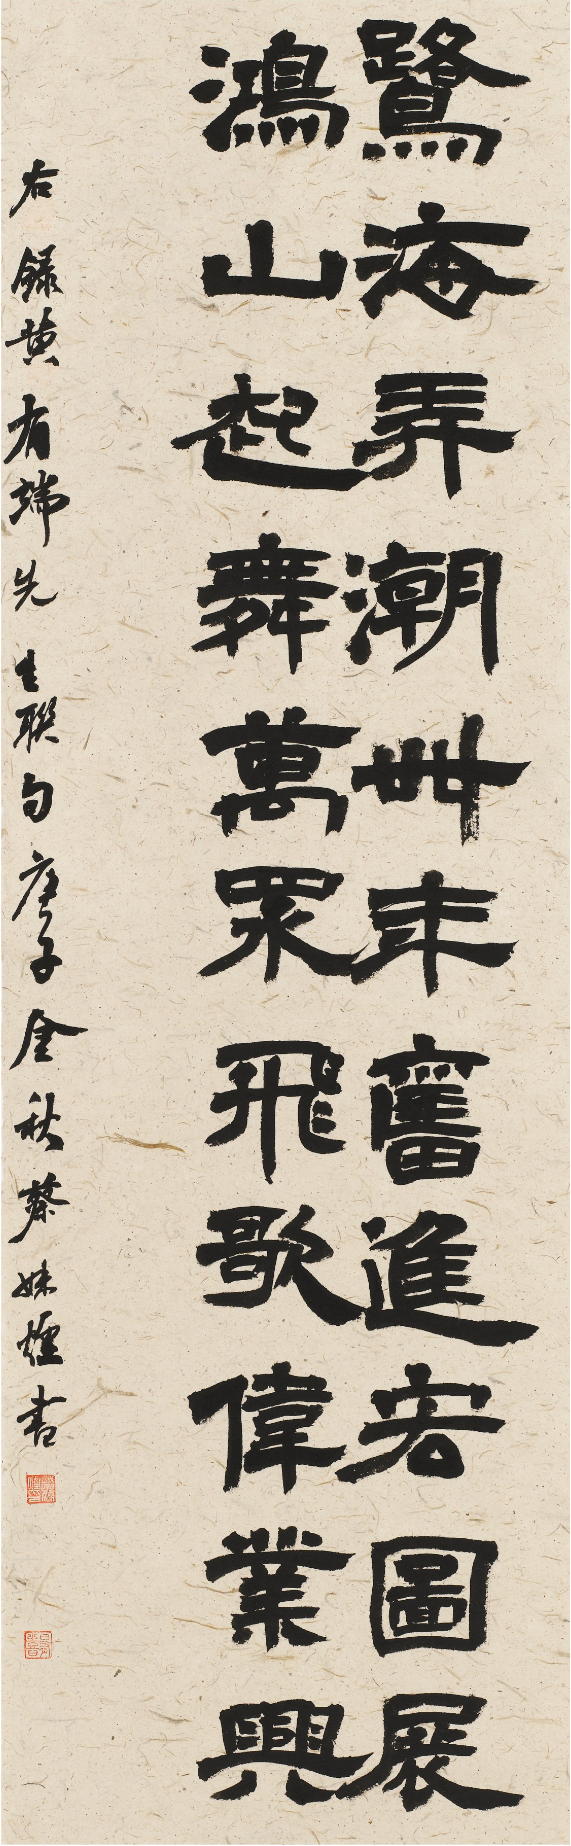 鷺海弄潮卌年奮進宏圖展
鴻山起舞萬眾飛歌偉業興
右録黄有端先生聯句庚子金秋蔡妹煙書